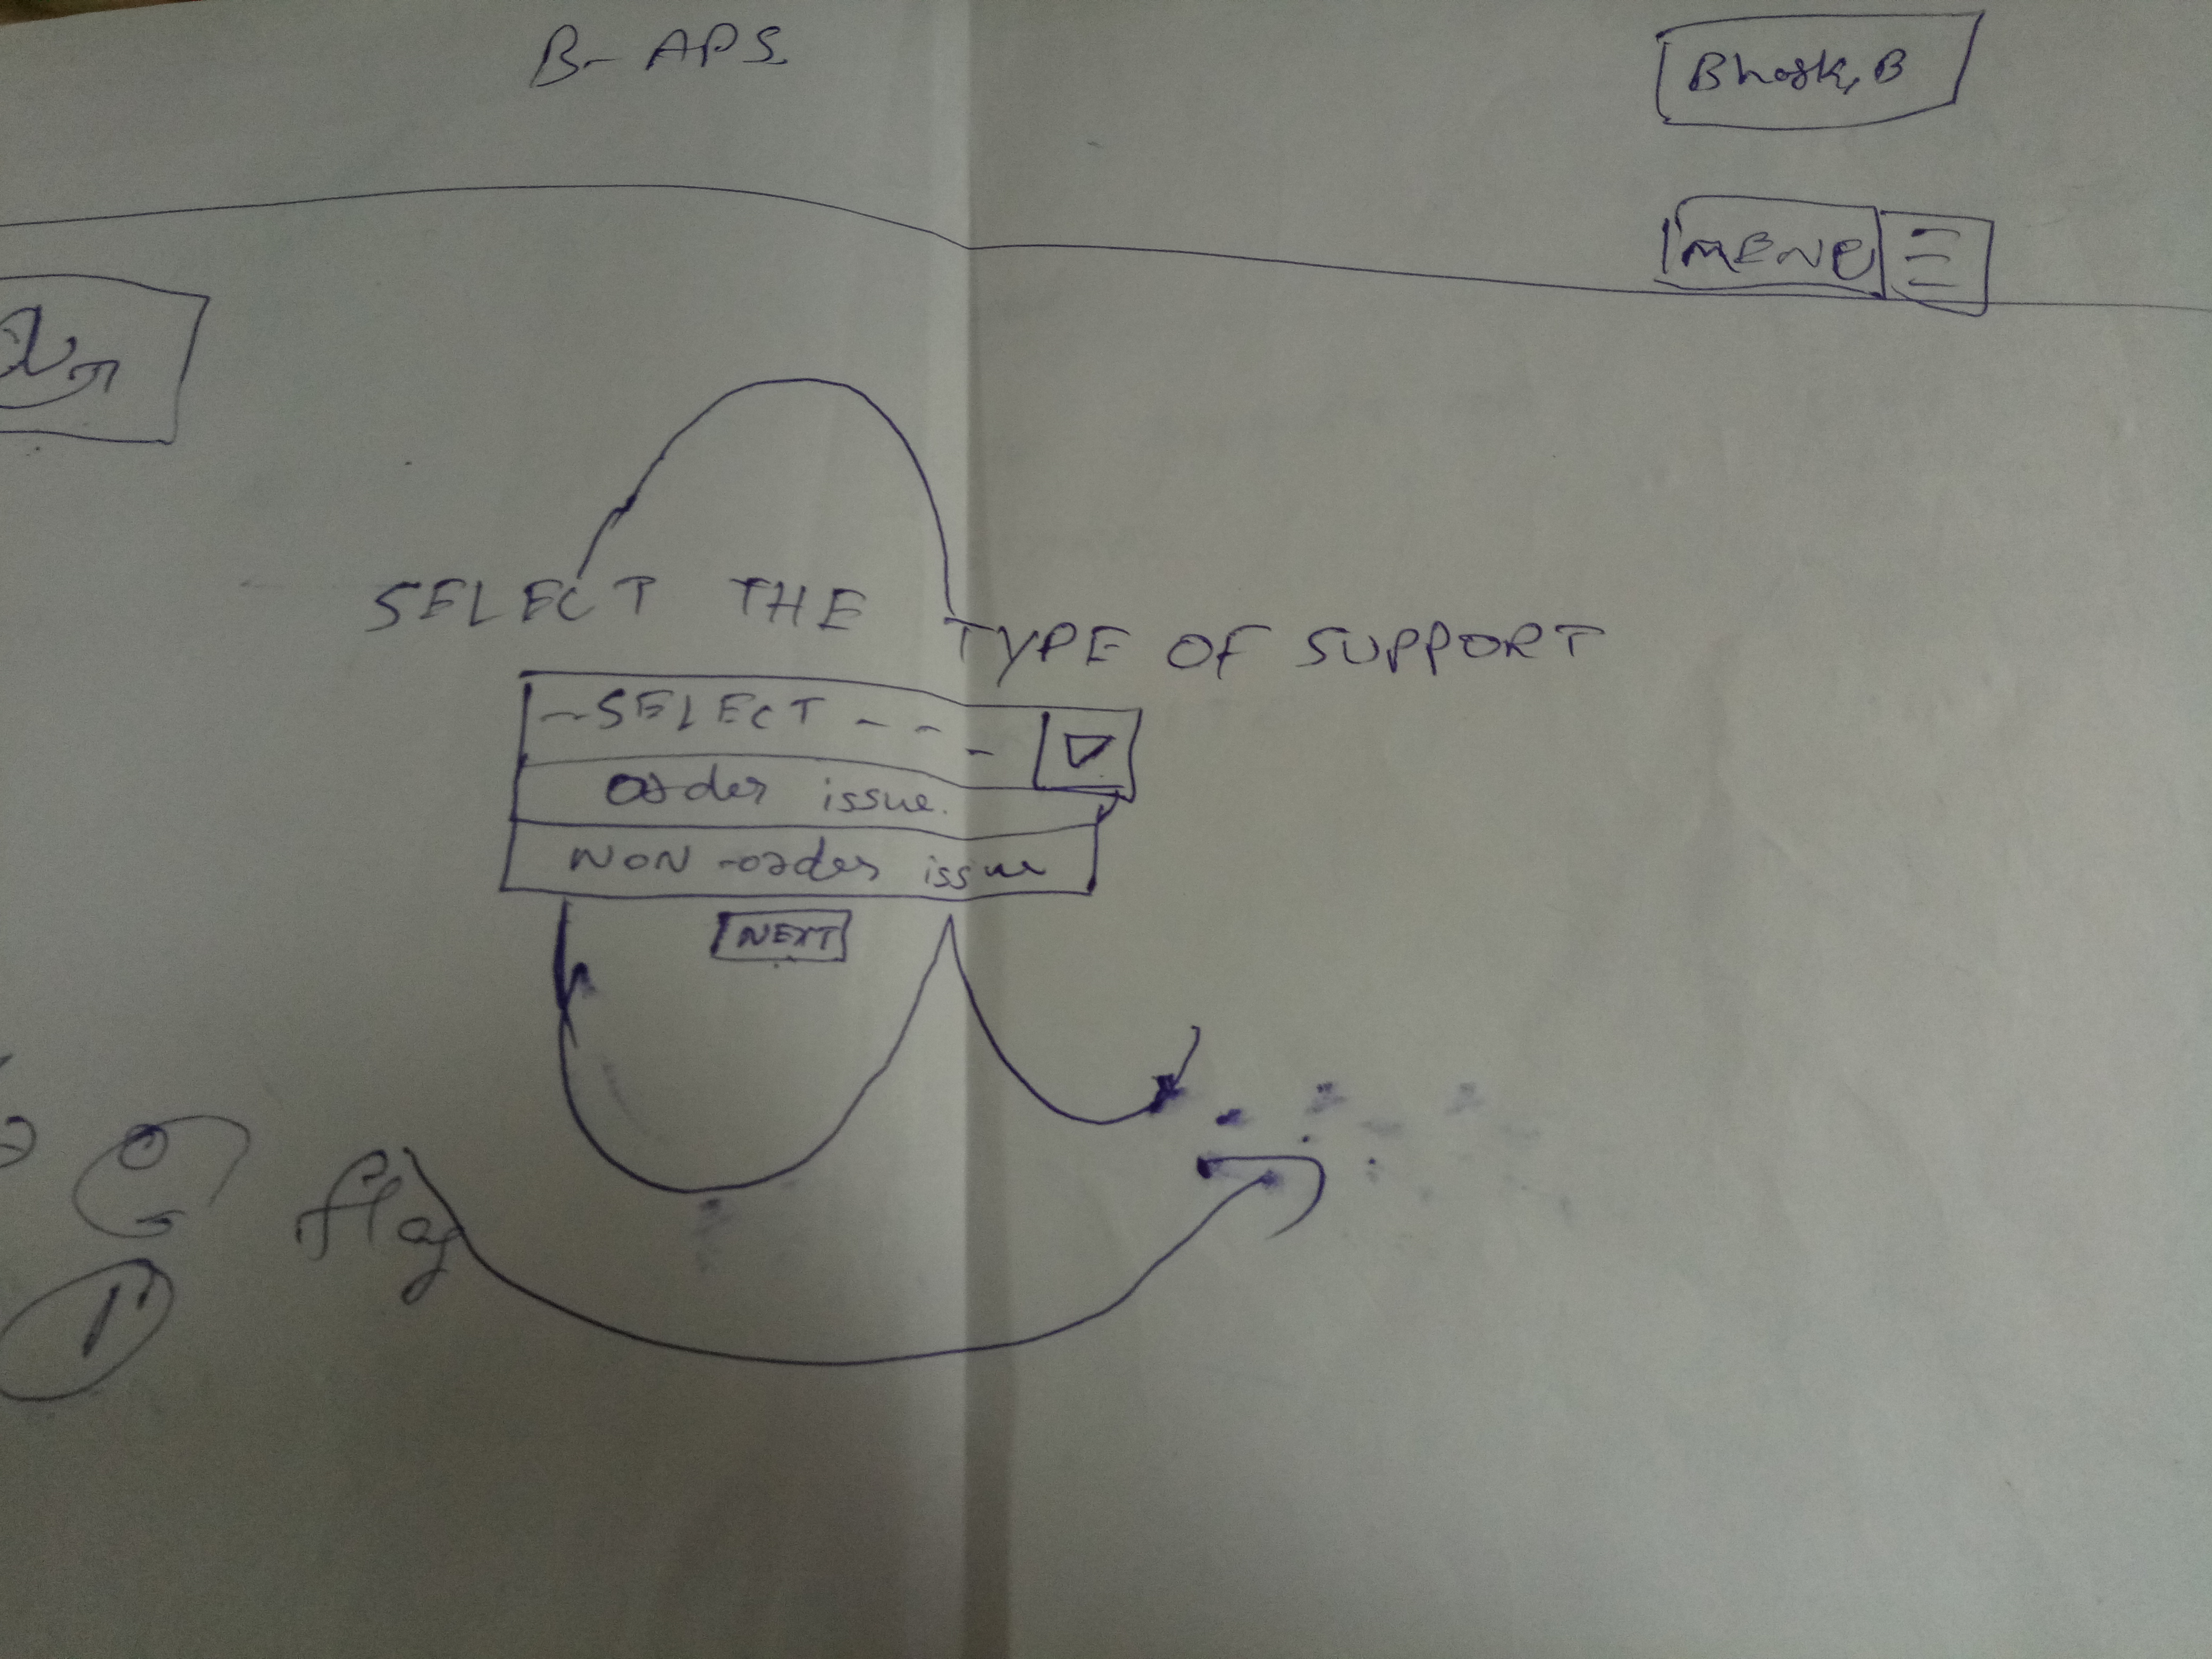 B-APS
Bhask, B
MENU
SELECT THE TYPE OF SUPPORT
-SELECT - - -
Order issue.
NON-order issue
NEXT
flag
1